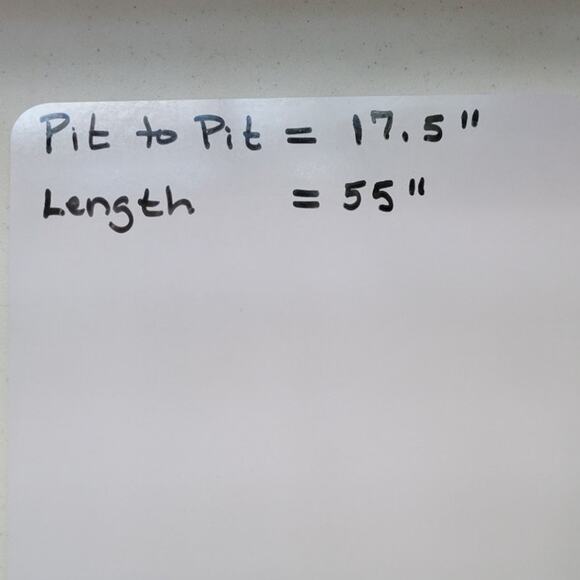 Pit to Pit = 17.5"
Length = 55"